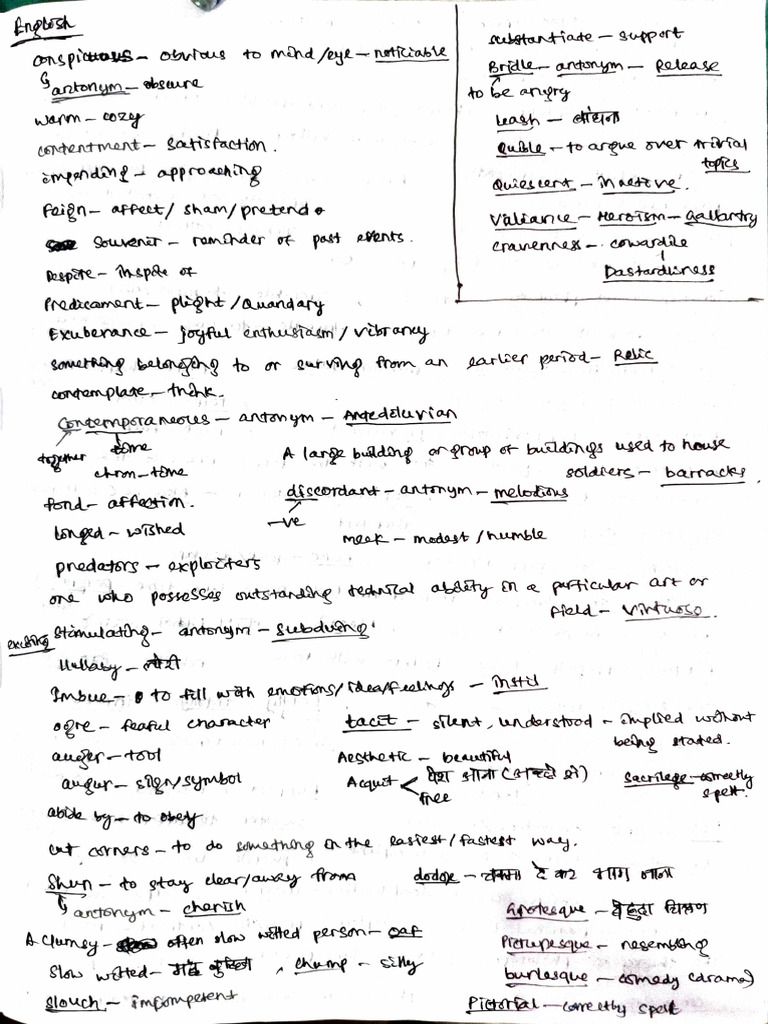 English
conspicuous - obvious to mind/eye - noticiable
antonym - obscure
warm - cozy
contentment - satisfaction.
impending - approaching
Feign - affect/ sham/pretend
souvenir - reminder of past events.
Despite - inspite of
Predicament - plight /Quandary
Exuberance - joyful enthusiasm / vibrancy
something belonging to or surving from an earlier period - Relic
contemplate - think.
Contemporaneous - antonym - Antedeluvian
together time
chron - time
fond - affection.
longed - wished
predators - exploiters
substantiate - support
Bridle - antonym - Release
to be angry
Leash - बांधना
Quible - to argue over trivial
topics
Quiescent - inactive.
Valiance - Heroism - gallantry
cravenness - cowardile
Dastardliness
A large building or group of buildings used to house
soldiers - barracks.
discordant - antonym - melodious
-ve
meek - modest /humble
one who possesses outstanding technical ability in a particular art or
field - Virtuoso.
exciting stimulating - antonym - subduing
Lullaby - लोरी
Imbue - to fill with emotions/idea/feelings - instil
ogre - fearful character
auger - tool
augur - sign/symbol
tacit - silent, understood - implied without
being stated.
Aesthetic - beautiful
Acquit < पेश आना (अच्छे से)
free
Sacrilege - correctly
spelt.
abide by - to obey
cut corners - to do something in the easiest/fastest way.
Shun - to stay clear/away from
antonym - cherish
dodge - चकमा दे कर भाग जाना
A clumsy - often slow witted person - oaf
Slow witted - मंद बुद्धि, chump - silly
Slouch - impompetent
Grotesque - बेहुदा चित्रण
Picturesque - resembling
burlesque - comedy (drama)
Pictorial - correctly spelt